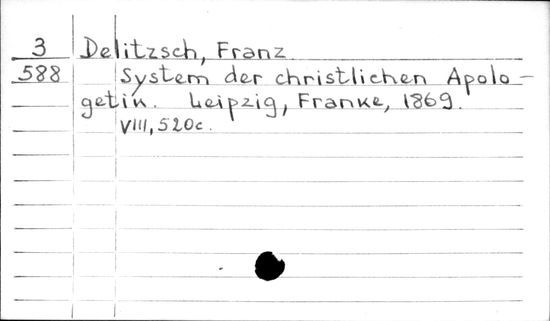 3 Delitzsch, Franz
588 System der christlichen Apolo-
getik. Leipzig, Franke, 1869.
VIII, 520c.